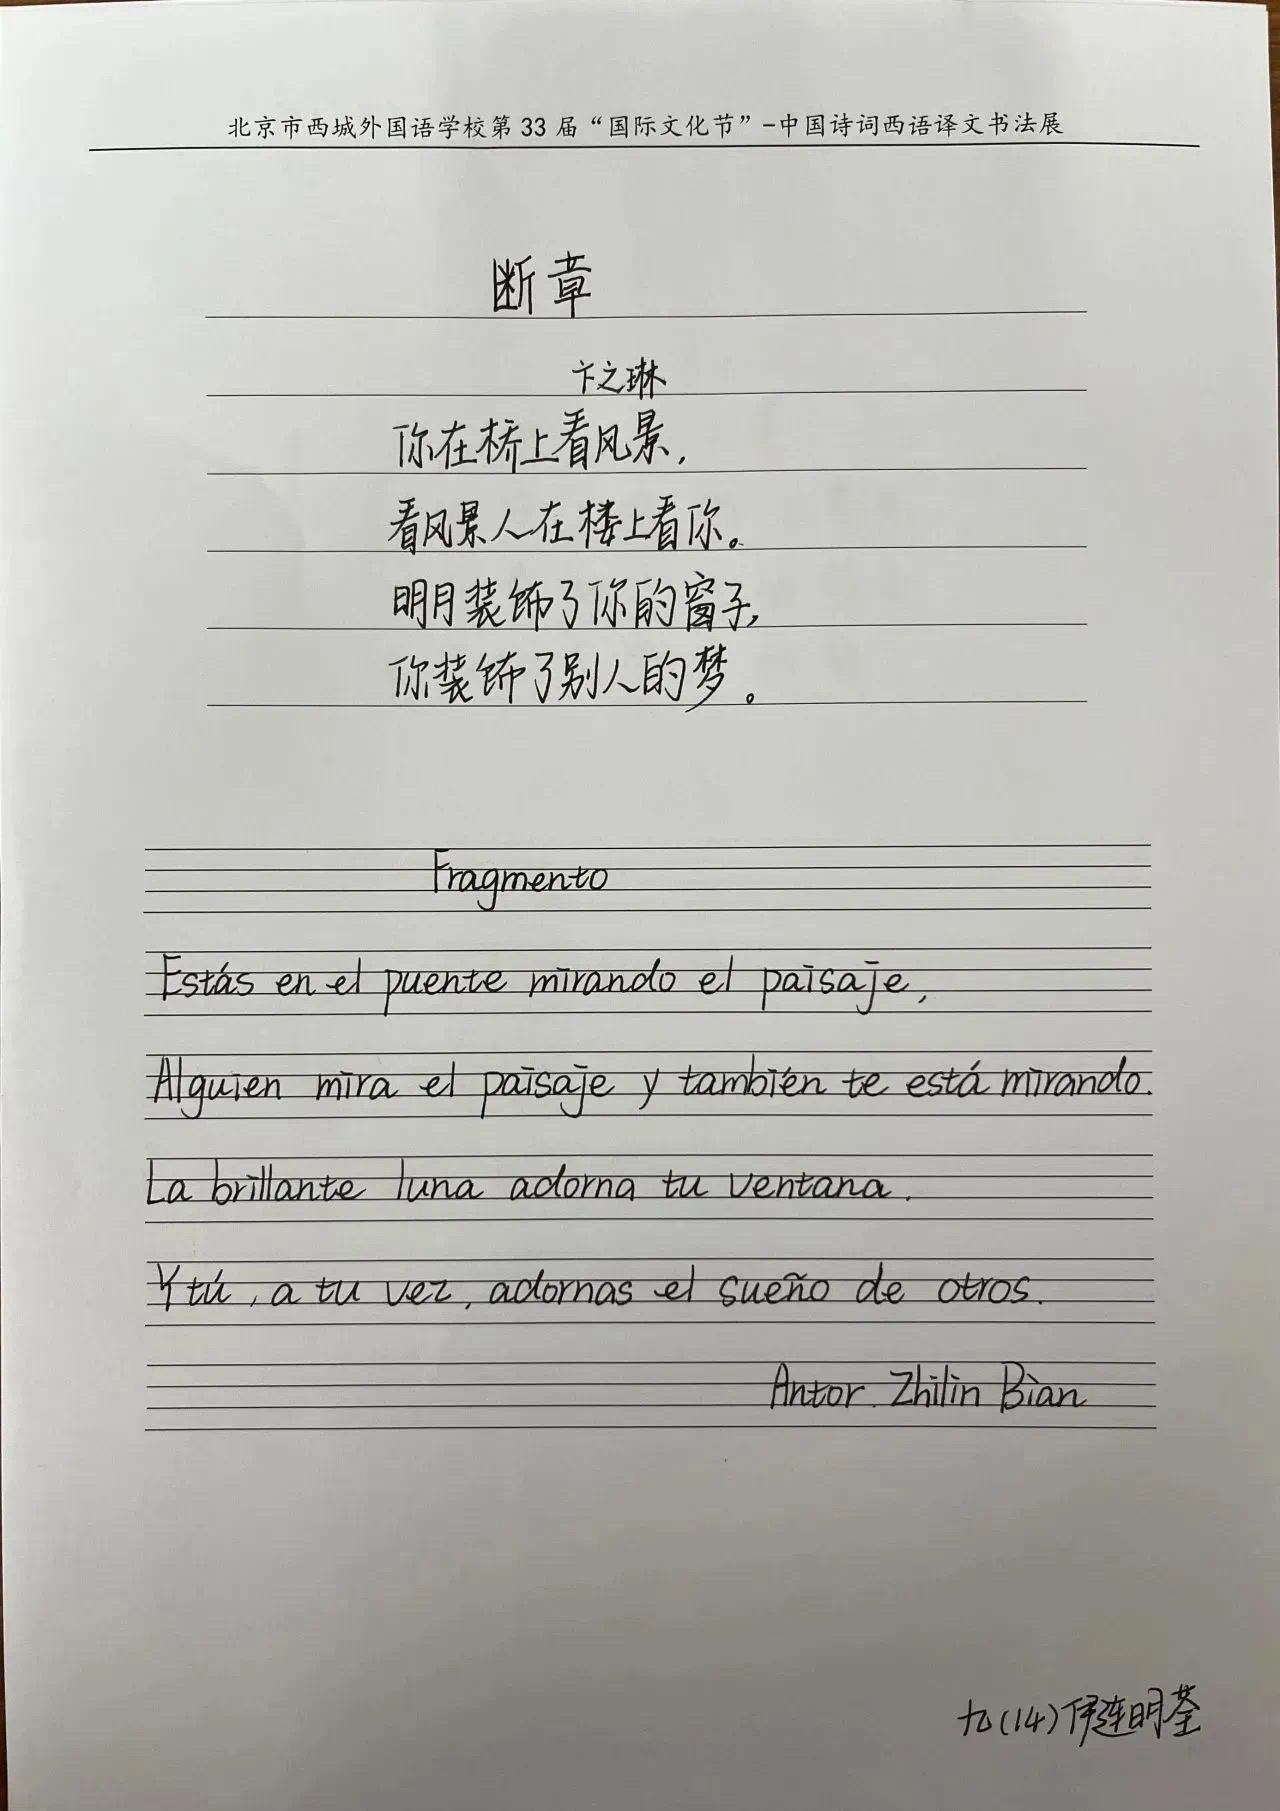 北京市西城外国语学校第 33 届“国际文化节”-中国诗词西语译文书法展
断章
卞之琳
你在桥上看风景,
看风景人在楼上看你。
明月装饰了你的窗子,
你装饰了别人的梦。
Fragmento
Estás en el puente mirando el paisaje,
Alguien mira el paisaje y también te está mirando.
La brillante luna adorna tu ventana.
Y tú, a tu vez, adornas el sueño de otros.
Antor. Zhilin Bian
九(14)伊连明荃